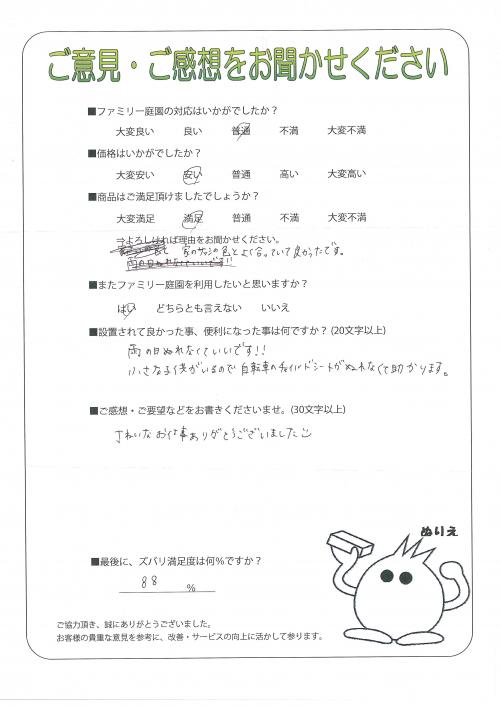 ご意見・ご感想をお聞かせください
■ファミリー庭園の対応はいかがでしたか？
大変良い 良い 普通 不満 大変不満
■価格はいかがでしたか？
大変安い 安い 普通 高い 大変高い
■商品はご満足頂けましたでしょうか？
大変満足 満足 普通 不満 大変不満
⇒よろしければ理由をお聞かせください。
家のサッシの色とよく合っていて良かったです。
雨の日ぬれなくていいです!!
■またファミリー庭園を利用したいと思いますか？
はい どちらとも言えない いいえ
■設置されて良かった事、便利になった事は何ですか？(20文字以上)
雨の日ぬれなくていいです!!
小さな子供がいるので自転車のチャイルドシートがぬれなくて助かります。
■ご感想・ご要望などをお書きくださいませ。(30文字以上)
丁ねいなお仕事ありがとうございました
ぬりえ
■最後に、ズバリ満足度は何%ですか？
88 %
ご協力頂き、誠にありがとうございました。
お客様の貴重な意見を参考に、改善・サービスの向上に活かして参ります。